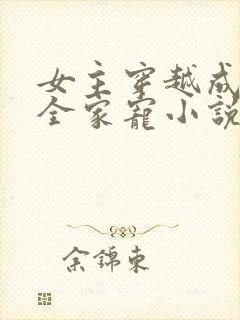 女主穿越成
全家寵小說
余錦東